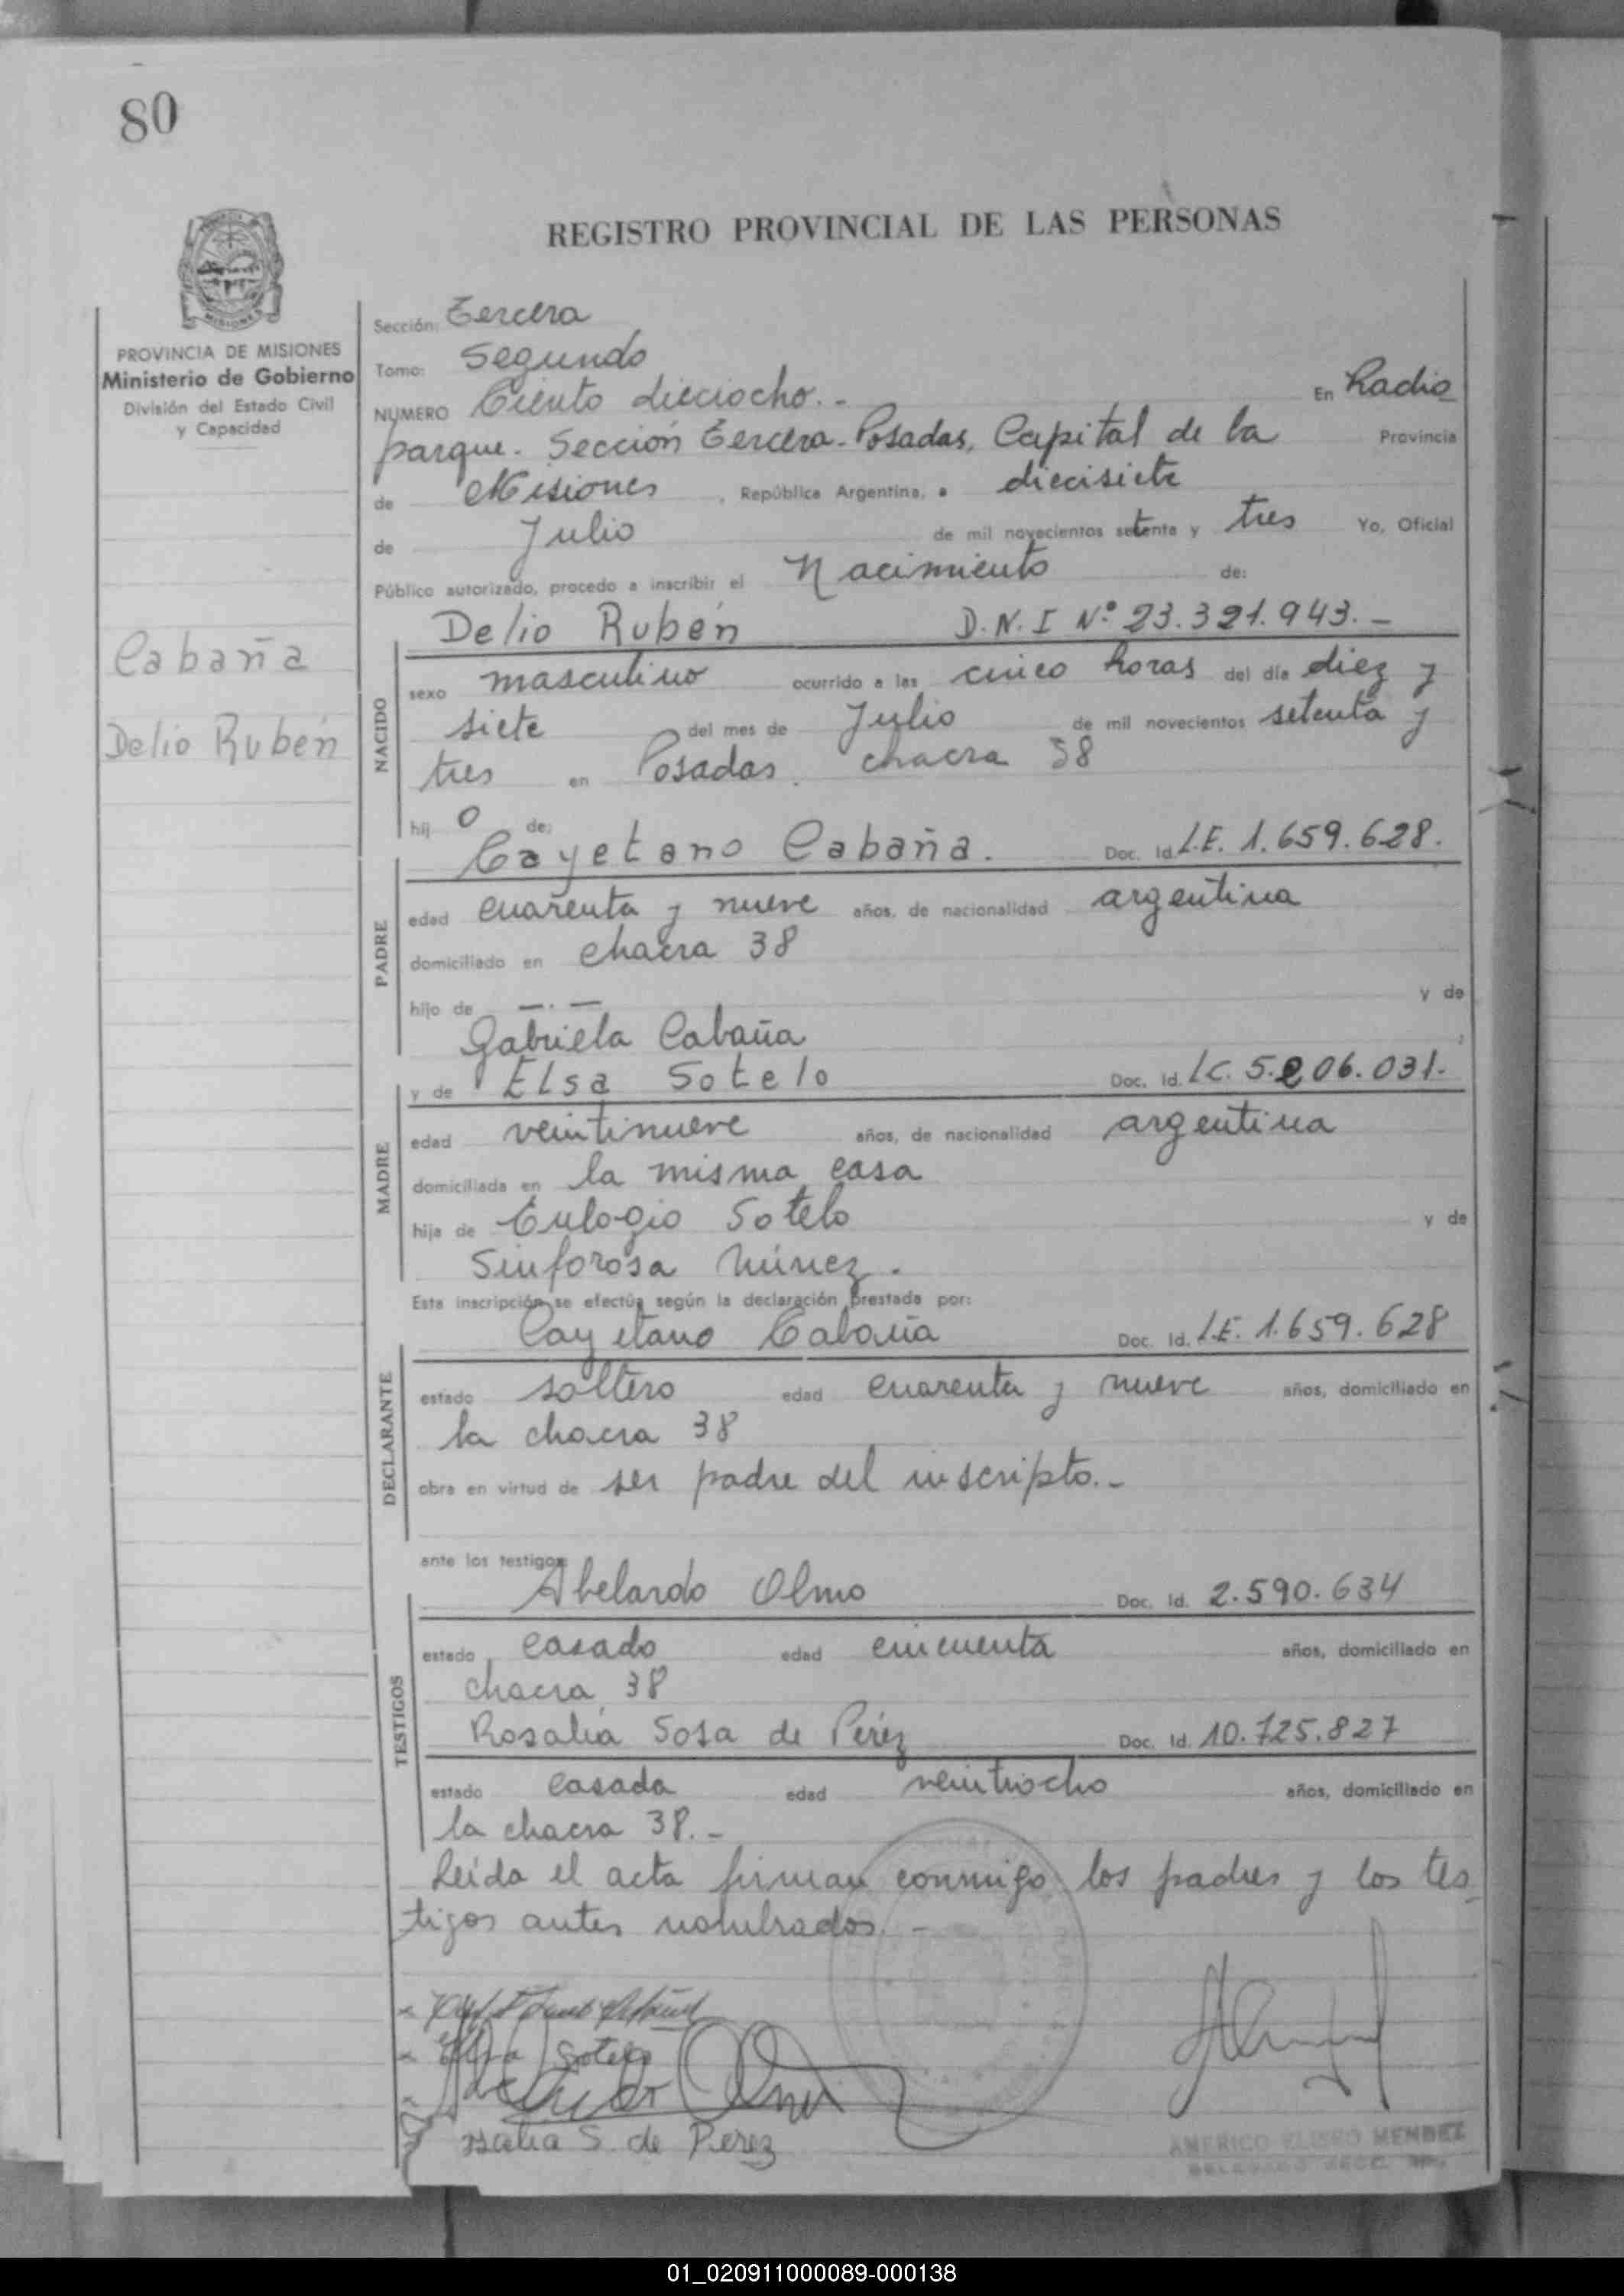 80
REGISTRO PROVINCIAL DE LAS PERSONAS
MISIONES
PROVINCIA DE MISIONES
Ministerio de Gobierno
División del Estado Civil
y Capacidad
Cabaña
Delio Rubén
Sección: Tercera
Tomo: Segundo
NUMERO Ciento dieciocho.- En Radio
parque. Sección Tercera - Posadas, Capital de la Provincia
de Misiones, República Argentina, a diecisiete
de Julio de mil novecientos setenta y tres Yo, Oficial
Público autorizado, procedo a inscribir el Nacimiento de:
Delio Rubén D.N.I Nº 23.321.943.-
NACIDO
sexo masculino ocurrido a las cinco horas del día diez y
siete del mes de Julio de mil novecientos setenta y
tres en Posadas. chacra 38
hij o de:
Cayetano Cabaña. Doc. Id. L.E. 1.659.628.
PADRE
edad cuarenta y nueve años, de nacionalidad argentina
domiciliado en chacra 38
hijo de —.— y de
Gabriela Cabaña
y de Elsa Sotelo Doc. Id. L.C. 5.206.031.-
MADRE
edad veintinueve años, de nacionalidad argentina
domiciliada en la misma casa
hija de Eulogio Sotelo y de
Sinforosa Núnez.
Esta inscripción se efectúa según la declaración prestada por:
Cayetano Cabaña Doc. Id. L.E. 1.659.628
DECLARANTE
estado soltero edad cuarenta y nueve años, domiciliado en
la chacra 38
obra en virtud de ser padre del inscripto.-
ante los testigos
Abelardo Olmo Doc. Id. 2.590.634
TESTIGOS
estado casado edad cincuenta años, domiciliado en
chacra 38
Rosalía Sosa de Pérez Doc. Id. 10.725.827
estado casada edad veintiocho años, domiciliado en
la chacra 38.-
Leída el acta firman conmigo los padres y los tes
tigos antes nombrados.-
Elsa Sotelo
Abelardo Olmo
S. de Perez
AMERICO ELISEO MENDEZ
01_020911000089-000138